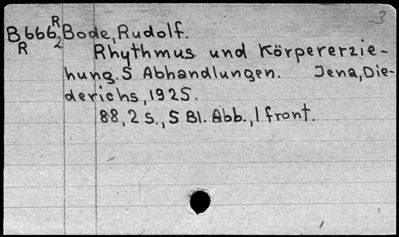 3
B666,R2 Bode, Rudolf.
R Rhythmus und Körpererzie-
hung. 5 Abhandlungen. Jena, Die-
derichs, 1925.
88, 2 S., 5 Bl. Abb., 1 front.